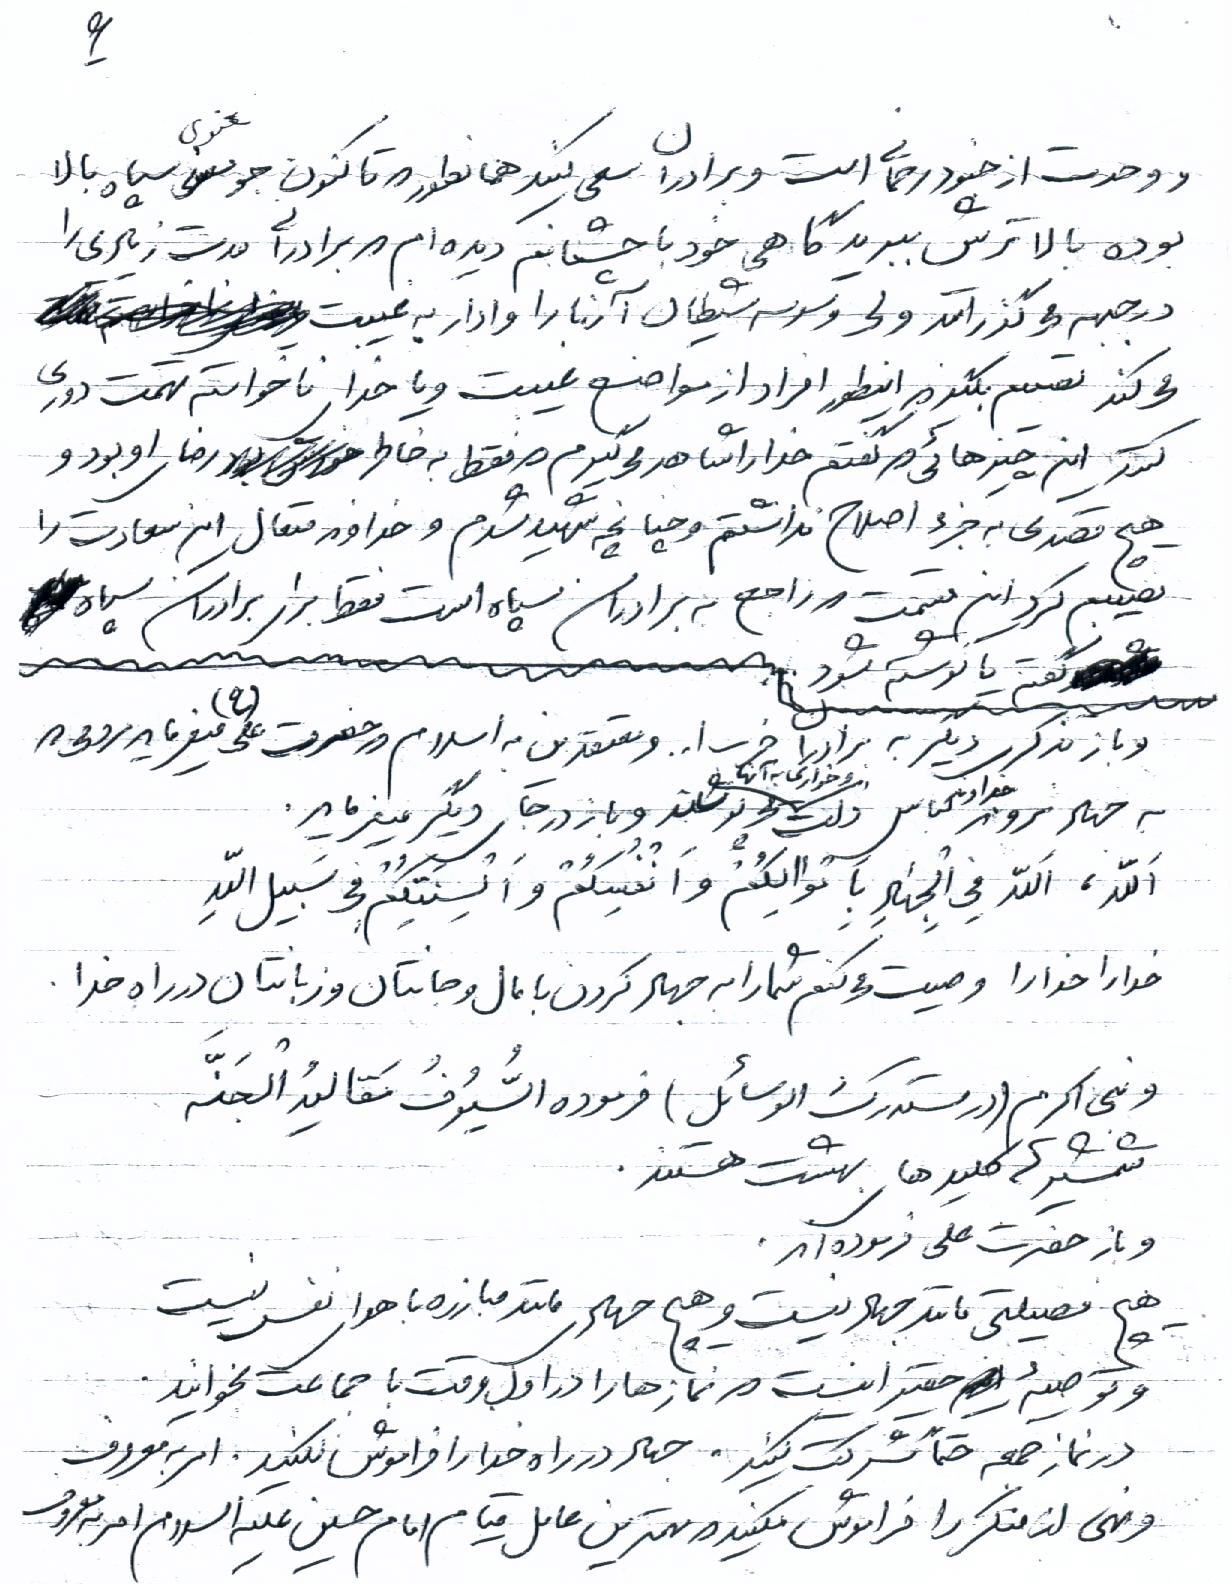 ۹
و وحدت از خود رحمائی است و برادران سعی کنید همانطور که تاکنون جو معنوی سپاه بالا
بوده بالاترش ببرید گاهی خود با چشمانم دیده ام که برادرانی مدت زیادی را
در جبهه می گذرانند ولی وسوسه شیطان آنها را وادار به غیبت
می کند تصمیم بگیرید اینطور افراد از مواضع غیبت و یا خدای ناخواسته تهمت دوری
کنند این چیزهائی که گفتم خدا را شاهد می گیرم که فقط به خاطر رضای او بود و
هیچ قصدی به جزء اصلاح نداشتم و چنانچه شهید شدم و خداوند متعال این سعادت را
نصیبم کرد این قسمت که راجع به برادران سپاه است فقط برای برادران سپاه
گفته یا نوشته شود
و باز تذکری دیگر به برادران حزب ا.. و معتقدین به اسلام که حضرت علی (ع) میفرماید مردمی که
به جهاد نروند خداوند لباس ذلت و خواری به آنها می پوشاند و باز در جای دیگر میفرماید.
اَللّه، اَللّه فِی الْجِهادِ بِاَمْوالِکُمْ وَ اَنْفُسِکُمْ وَ اَلْسِنَتِکُمْ فی سَبیلِ اللّهِ
خدا را خدا را وصیت می کنم شما را به جهاد کردن با مال و جانتان و زبانتان در راه خدا.
و نبی اکرم (در مستدرک الوسائل) فرموده اَلسُّیُوفُ مَقالیدُ الْجَنَّه
شمشیر ها کلید های بهشت هستند.
و باز حضرت علی فرموده اند.
هیچ فضیلتی مانند جهاد نیست و هیچ جهادی مانند مبارزه با هوای نفس نیست
و توصیهٔ حقیر اینست که نمازها را در اول وقت با جماعت بخوانید.
در نماز جمعه حتماً شرکت کنید. جهاد در راه خدا را فراموش نکنید. امر به معروف
و نهی از منکر را فراموش نکنید که مهمترین عامل قیام امام حسین علیه السلام امر به معروف